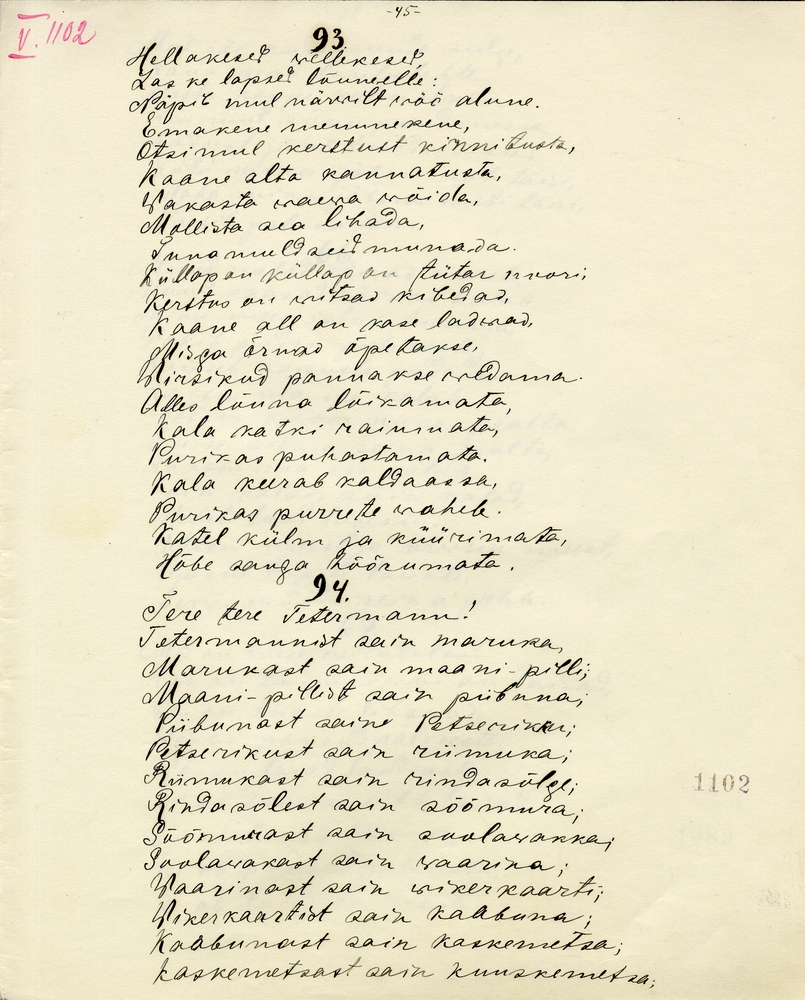 -45-
V. 1102
93
Hellakesed wellekesed,
Las ke lapsed lõuneelle:
Näpib mul närwilt wöö alune.
Emakene memmekene,
Otsi mul kerstust kinnitusta,
Kaane alta kannatusta,
Wakasta waewa wõida,
Mollista sea lihada,
Tuna muldseid munada.
Küllap on küllap on tütar noori,
Kerstus on witsad kibedad,
Kaane all on kase ladwad,
Misga õrnad õpetakse,
Wirsikud pannakse wedama.
Alles lõuna lõikamata,
Kala katki raiumata,
Purikas puhastamata.
Kala keerab kaldaassa,
Purikas purrete wahele.
Katel külm ja küürimata,
Hõbe sanga hõõrumata.
94.
Tere tere Tetermann!
Tetermannist sain maruka,
Marukast sain maani-pilli;
Maani-pillist sain piibuna;
Piibunast saine Petseriku;
Petserikust sain riimuka;
Riimukast sain rindasõlge;
Rindasõlest sain sõõmura;
Sõõmurast sain soolawakka;
Soolawakast sain waarina;
Waarinast sain wikerkaarti;
Wikerkaartist sain kaabuna;
Kaabunast sain kaskemetsa;
Kaskemetsast sain kuuskemetsa;
1102